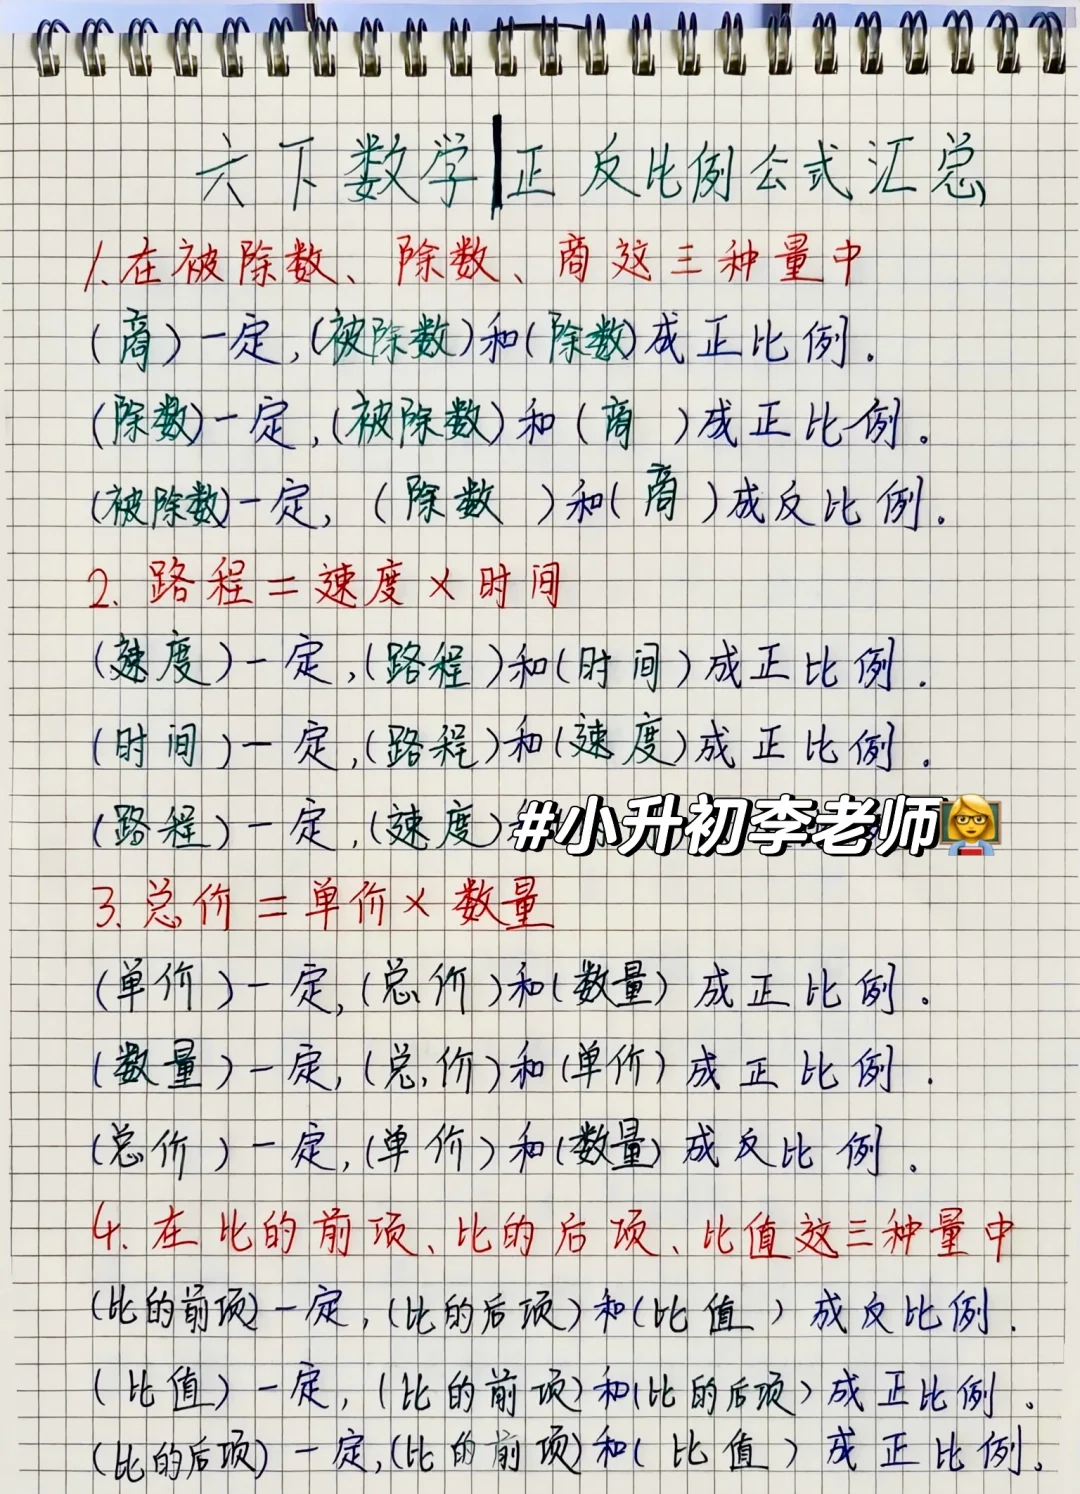 六下数学|正反比例公式汇总
1.在被除数、除数、商这三种量中
(商)一定,(被除数)和(除数)成正比例.
(除数)一定,(被除数)和(商)成正比例.
(被除数)一定,(除数)和(商)成反比例.
2.路程=速度×时间
(速度)一定,(路程)和(时间)成正比例.
(时间)一定,(路程)和(速度)成正比例.
(路程)一定,(速度)
#小升初李老师
3.总价=单价×数量
(单价)一定,(总价)和(数量)成正比例.
(数量)一定,(总价)和(单价)成正比例.
(总价)一定,(单价)和(数量)成反比例.
4.在比的前项、比的后项、比值这三种量中
(比的前项)一定,(比的后项)和(比值)成反比例.
(比值)一定,(比的前项)和(比的后项)成正比例.
(比的后项)一定,(比的前项)和(比值)成正比例.